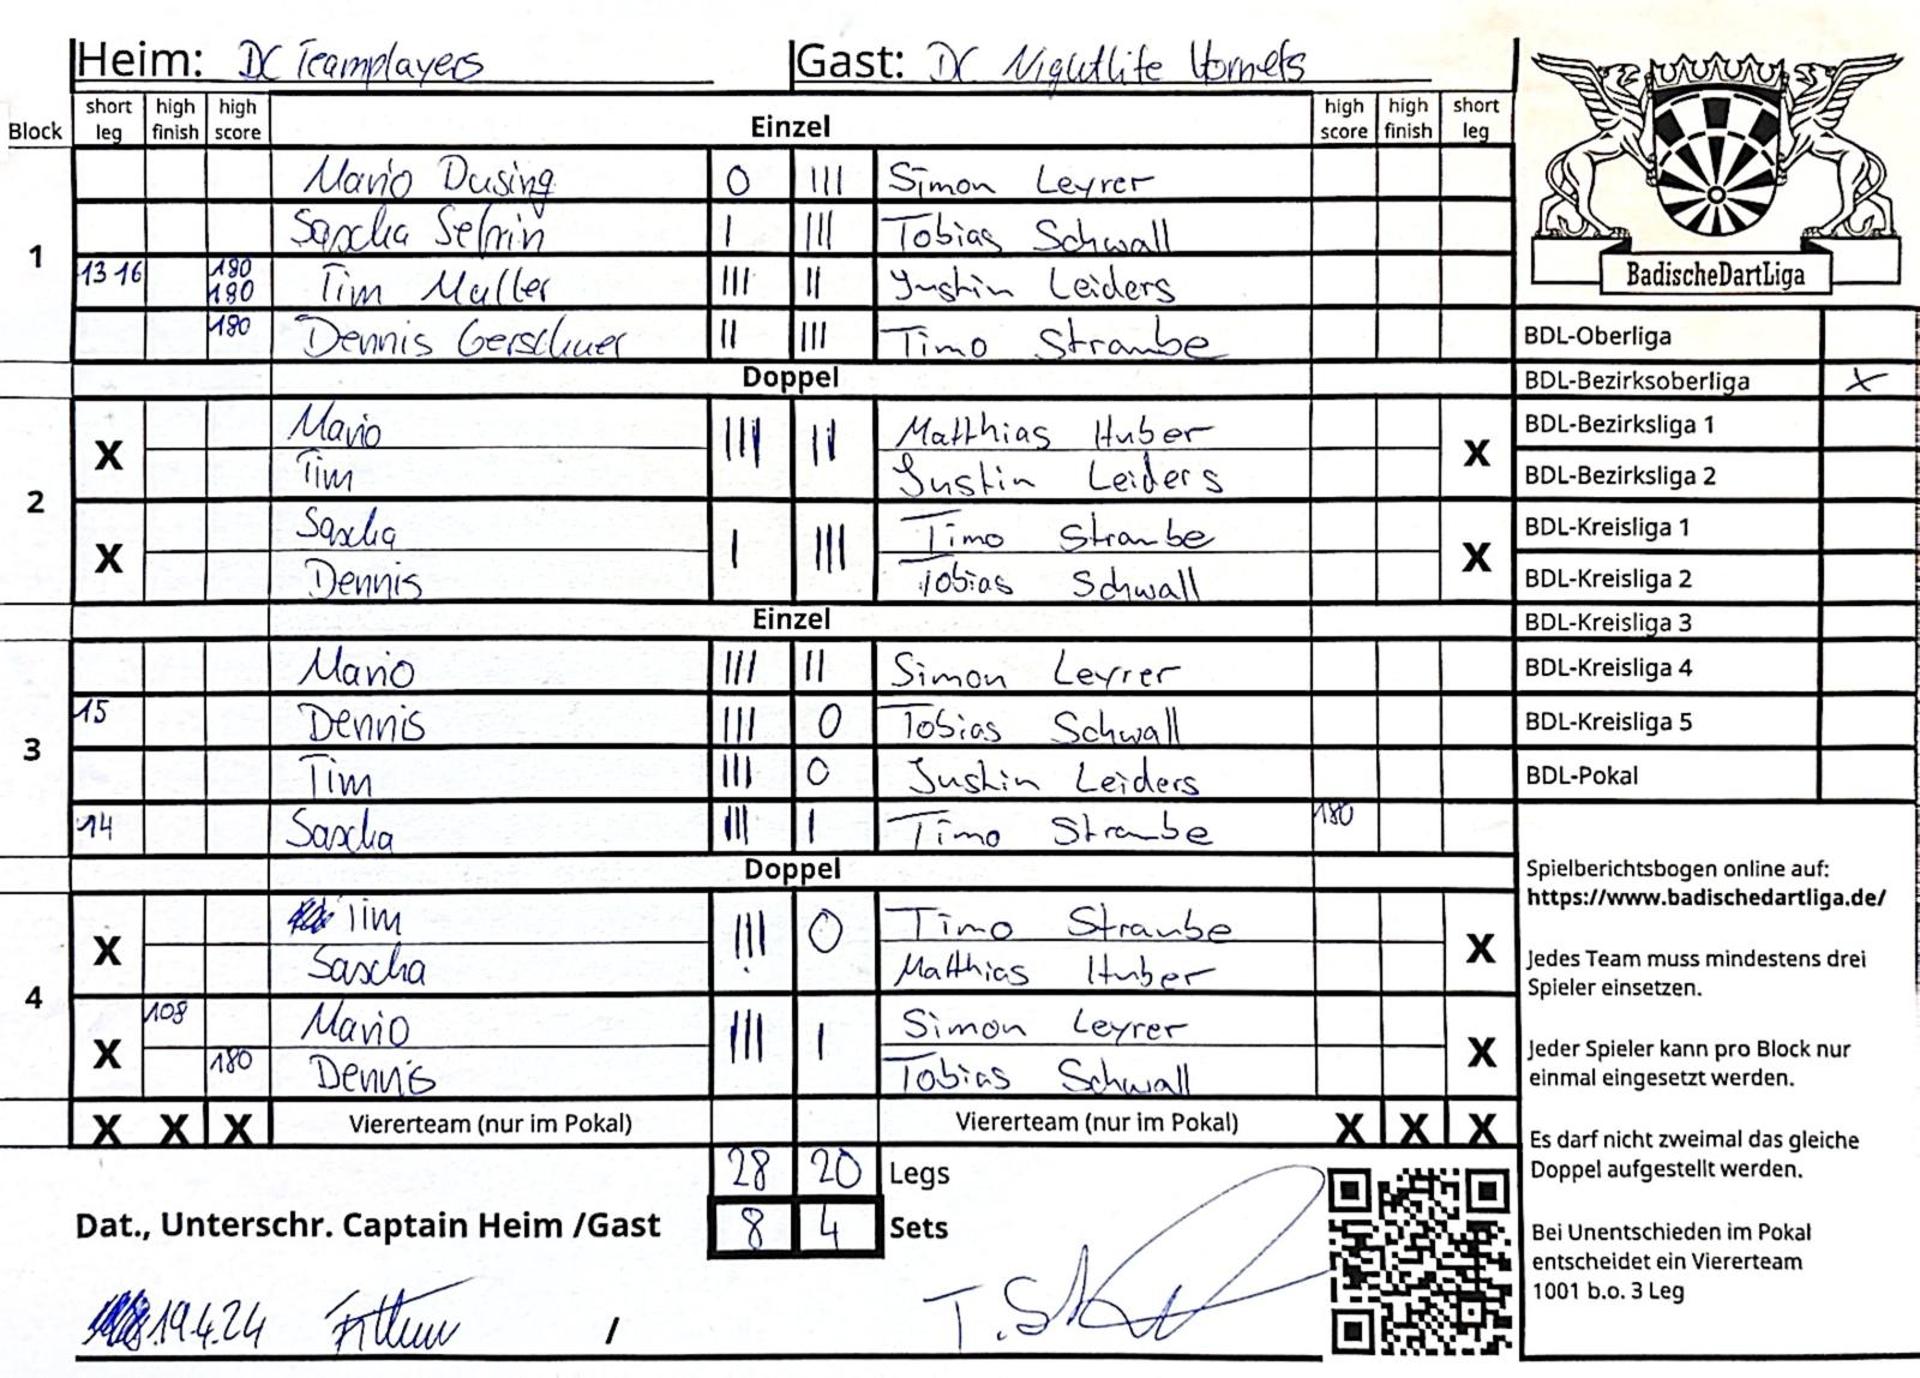 Heim: DC Teamplayers Gast: DC Nightlife Hornets
Block short leg high finish high score Einzel high score high finish short leg
1
Mario Dusing 0 III Simon Leyrer
Sascha Sefrin I III Tobias Schwall
13 16 180 180 Tim Muller III II Justin Leiders
180 Dennis Gerschuer II III Timo Straube
Doppel
2
X Mario Tim III II Matthias Huber Justin Leiders X
X Sascha Dennis I III Timo Straube Tobias Schwall X
Einzel
3
Mario III II Simon Leyrer
15 Dennis III 0 Tobias Schwall
Tim III 0 Justin Leiders
14 Sascha III I Timo Straube 180
Doppel
4
X Tim Sascha III 0 Timo Straube Matthias Huber X
X 108 180 Mario Dennis III I Simon Leyrer Tobias Schwall X
X X X Viererteam (nur im Pokal) Viererteam (nur im Pokal) X X X
28 20 Legs
Dat., Unterschr. Captain Heim /Gast 8 4 Sets
19.4.24 /
BadischeDartLiga
BDL-Oberliga
BDL-Bezirksoberliga X
BDL-Bezirksliga 1
BDL-Bezirksliga 2
BDL-Kreisliga 1
BDL-Kreisliga 2
BDL-Kreisliga 3
BDL-Kreisliga 4
BDL-Kreisliga 5
BDL-Pokal
Spielberichtsbogen online auf:
https://www.badischedartliga.de/
Jedes Team muss mindestens drei
Spieler einsetzen.
Jeder Spieler kann pro Block nur
einmal eingesetzt werden.
Es darf nicht zweimal das gleiche
Doppel aufgestellt werden.
Bei Unentschieden im Pokal
entscheidet ein Viererteam
1001 b.o. 3 Leg